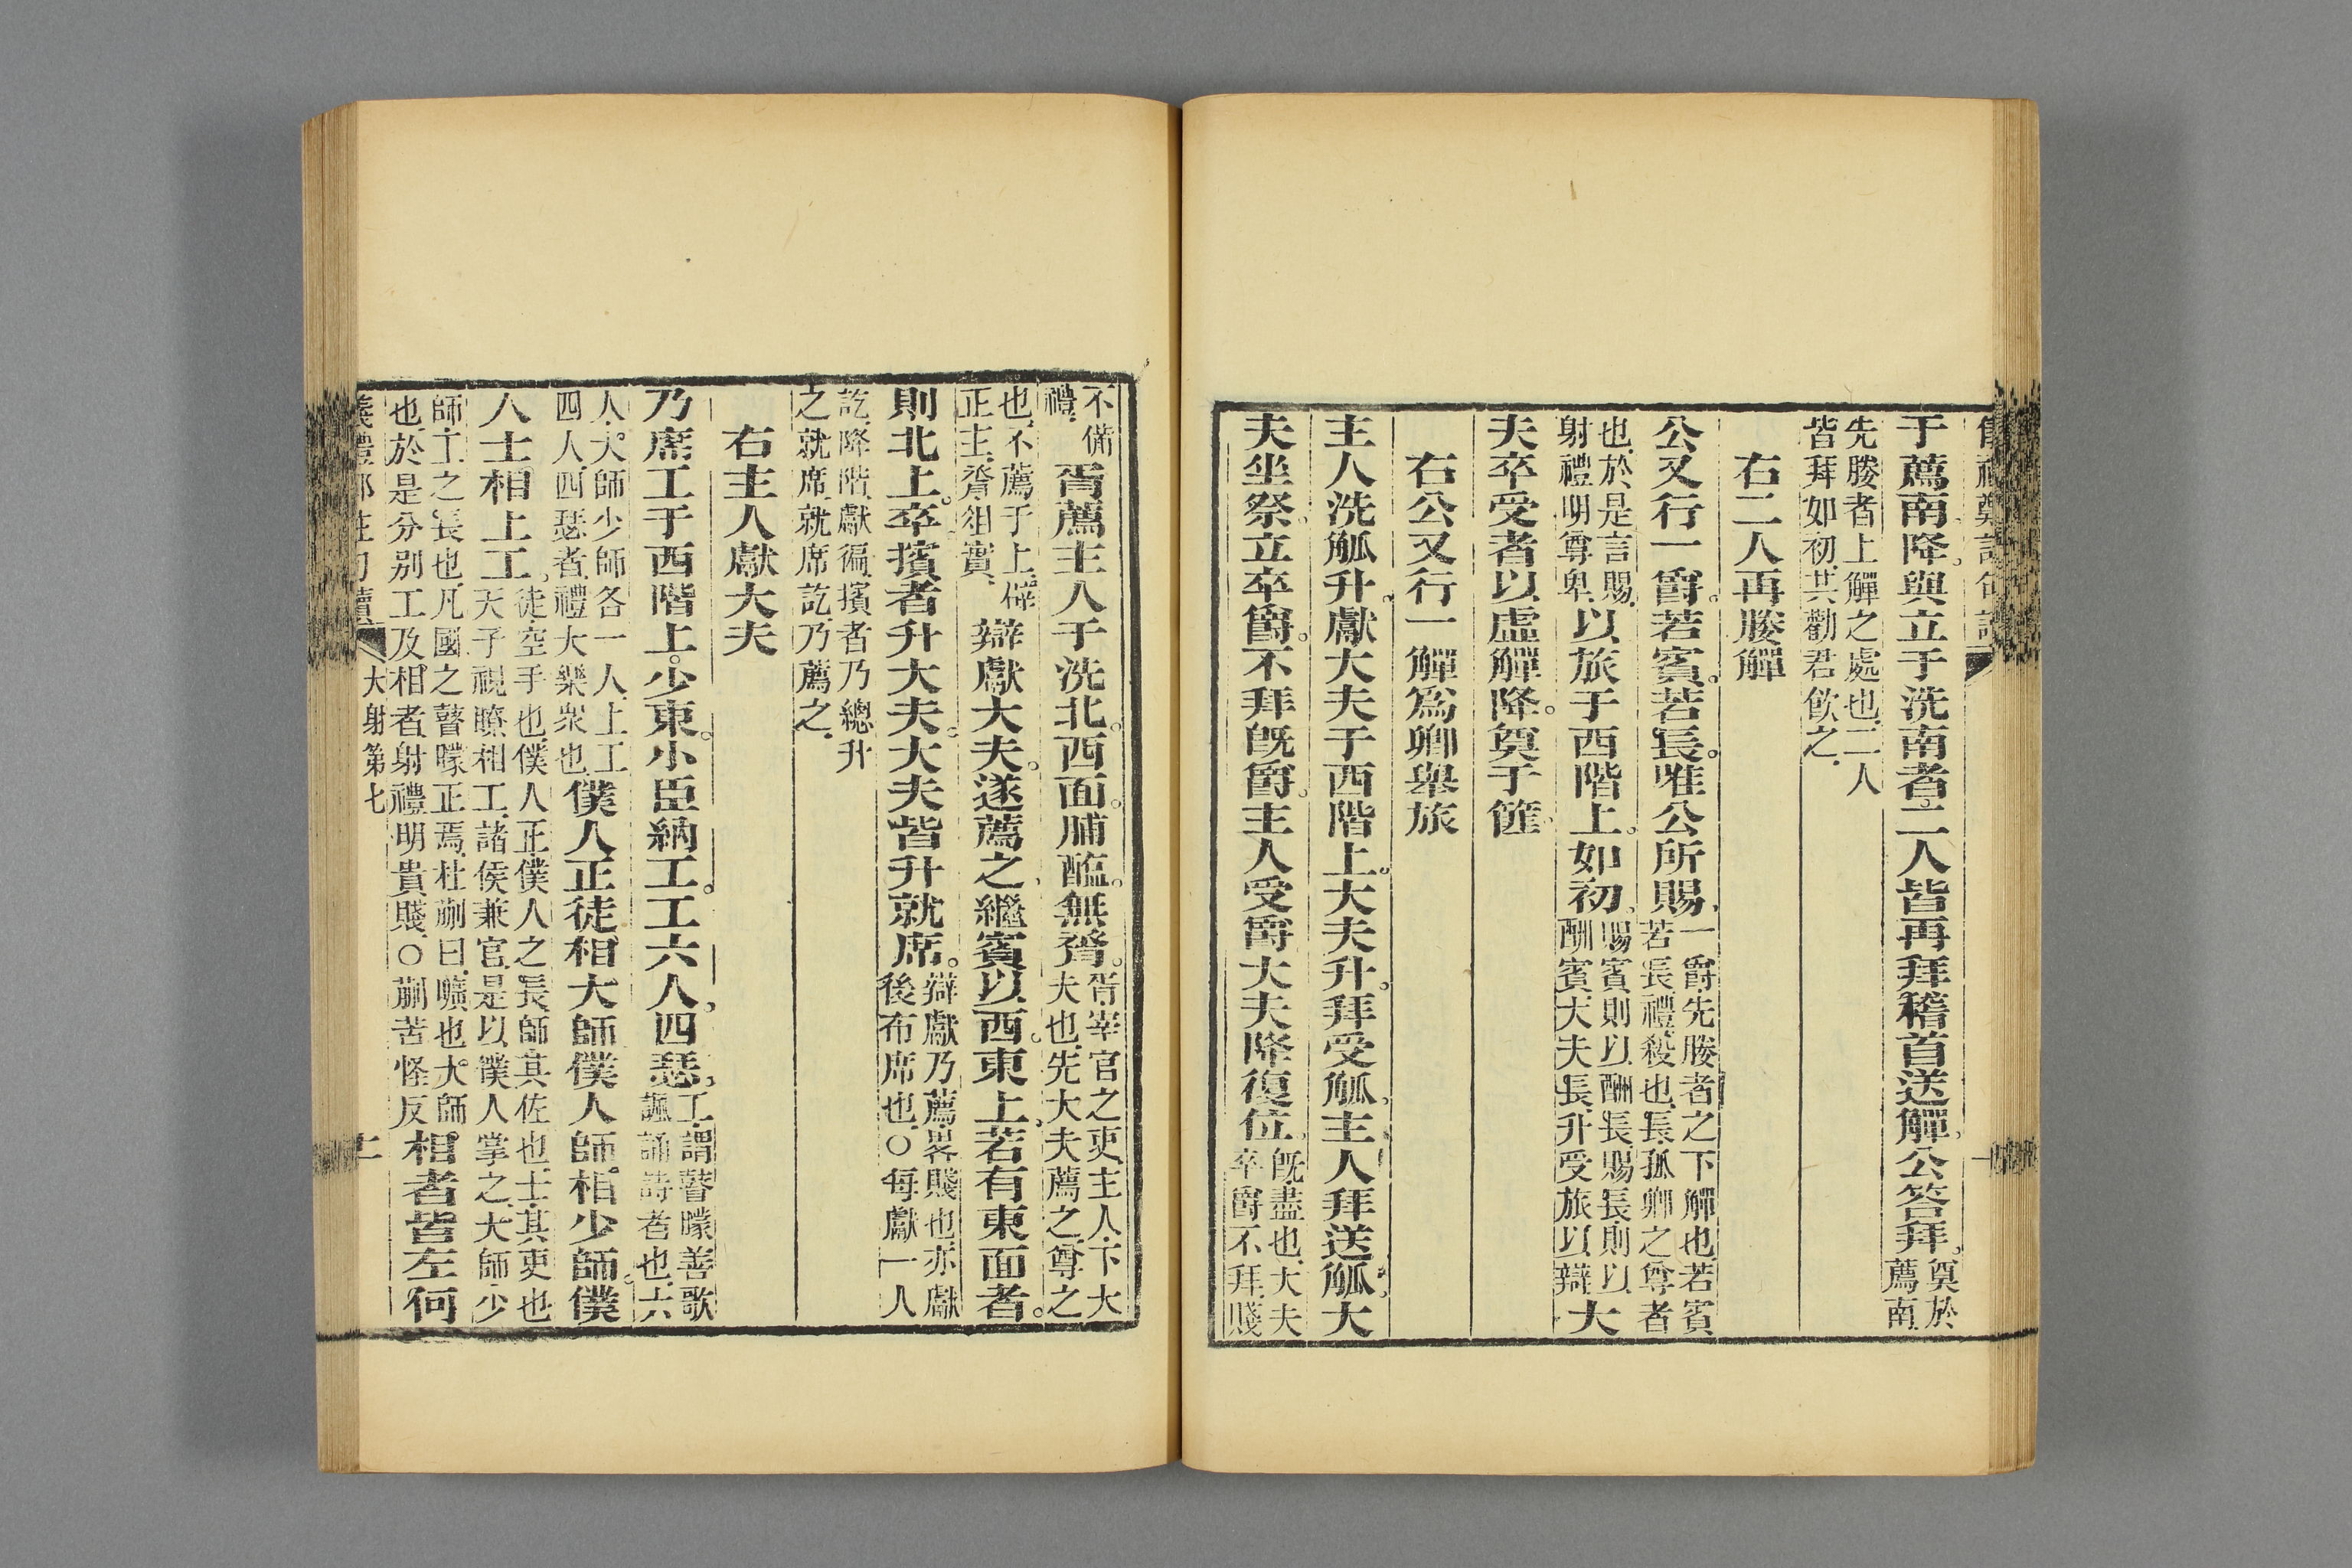 于薦南降與立于洗南者二人皆再拜稽首送觶公答拜奠於薦南
先媵者上觶之處也二人皆拜如初共勸君飲之
右二人再媵觶
公又行一爵若賓若長唯公所賜一爵先媵者之下觶也若賓若長禮殺也長孤卿之尊者
也於是言賜射禮明尊卑以旅于西階上如初賜賓則以酬長賜長則以酬賓大夫長升受旅以辯大
夫卒受者以虛觶降奠于篚
右公又行一觶為卿舉旅
主人洗觚升獻大夫于西階上大夫升拜受觚主人拜送觚大
夫坐祭立卒爵不拜旣爵主人受爵大夫降復位旣盡也大夫卒爵不拜賤
不備禮胥薦主人于洗北西面脯醢無脀胥宰官之吏主人下大夫也先大夫薦之尊之
也不薦于上辟正主脀俎實辯獻大夫遂薦之繼賓以西東上若有東面者
則北上卒擯者升大夫大夫皆升就席辯獻乃薦畧賤也亦獻後布席也○每獻一人
訖降階獻徧擯者乃總升之就席就席訖乃薦之
右主人獻大夫
乃席工于西階上少東小臣納工工六人四瑟工謂瞽矇善歌諷誦詩者也六
人大師少師各一人上工四人四瑟者禮大樂衆也僕人正徒相大師僕人師相少師僕
人士相上工徒空手也僕人正僕人之長師其佐也士其吏也天子視瞭相工諸侯兼官是以僕人掌之大師少
師工之長也凡國之瞽矇正焉杜蒯曰曠也大師也於是分別工及相者射禮明貴賤○蒯苦怪反相者皆左何
大射第七